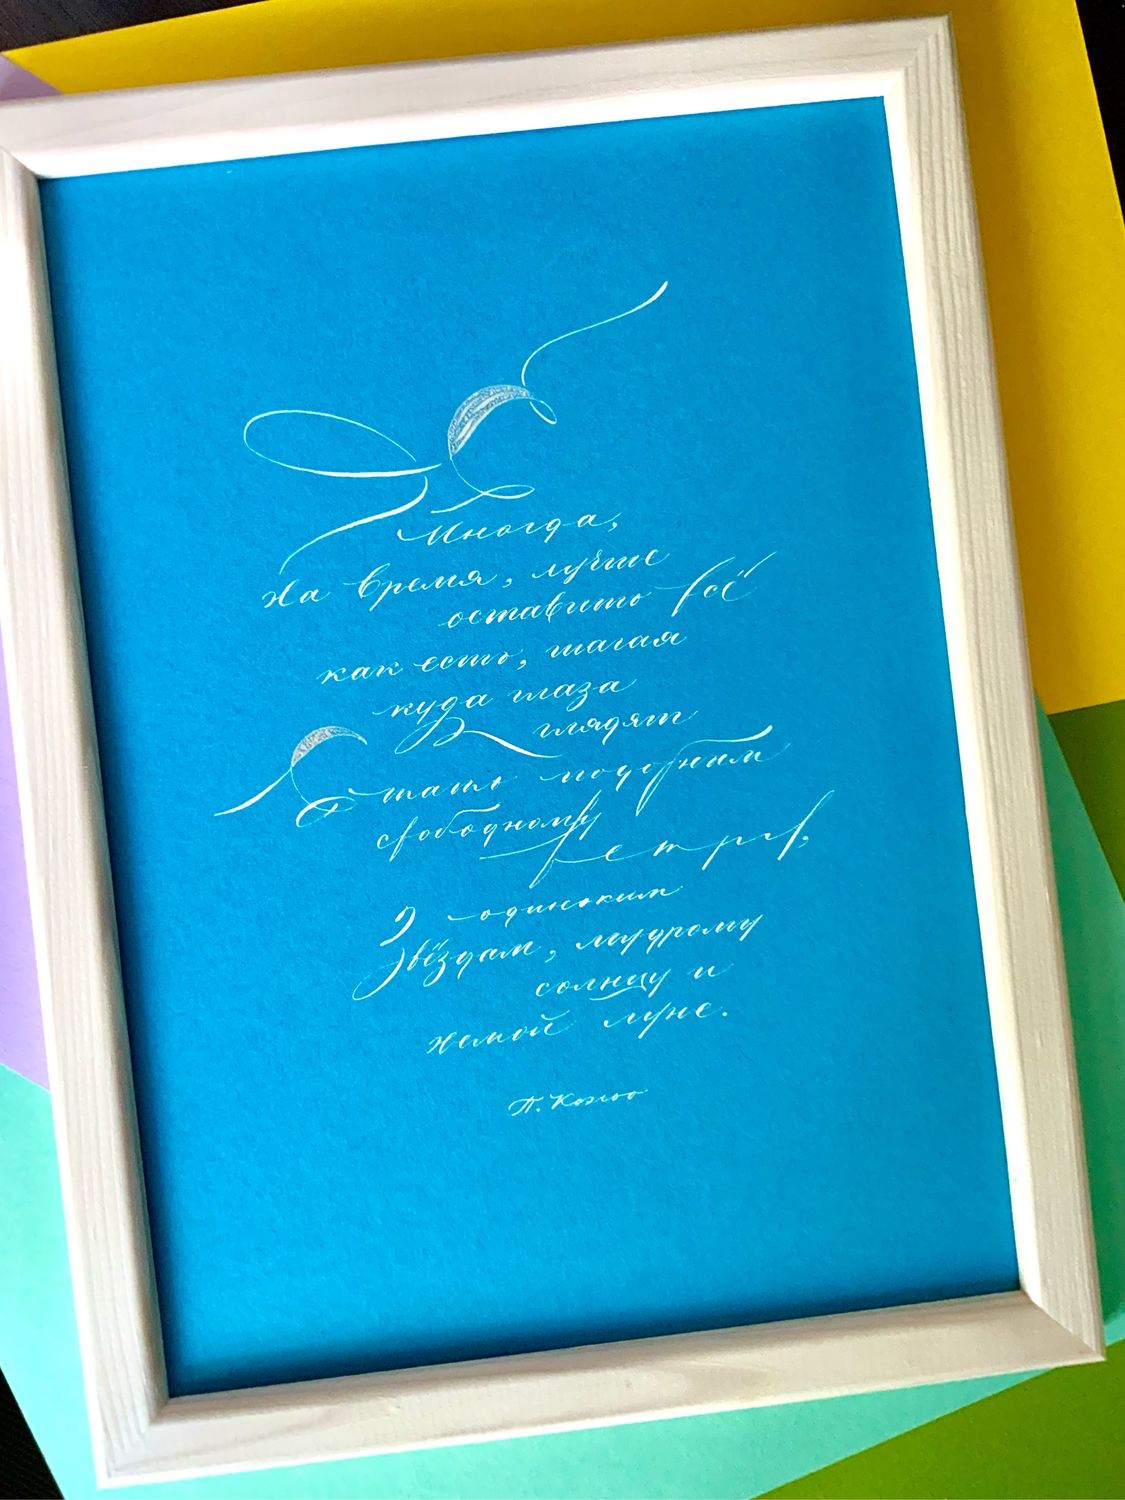 Иногда,
на время, лучше
оставить всё
как есть, шагая
куда глаза
глядят
Стать подобным
свободному
ветру,
одиноким
Звёздам, мудрому
солнцу и
немой луне.
П. Коэльо